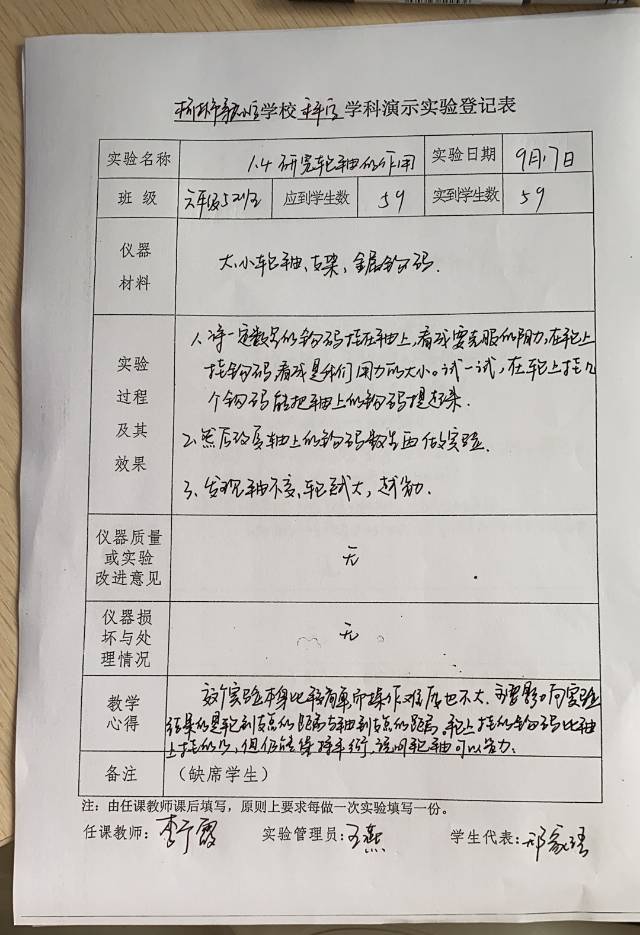 学校 科学 学科演示实验登记表
实验名称 1.4 研究轮轴的作用 实验日期 9月17日
班 级 六年级521班 应到学生数 59 实到学生数 59
仪器
材料
大、小轮轴、支架、金属钩码.
实验
过程
及其
效果
1、将一定数量的钩码挂在轴上,看成要克服的阻力,在轮上
挂钩码,看成是我们用力的大小。试一试,在轮上挂几
个钩码能把轴上的钩码提起来.
2、然后改变轴上的钩码数,再做实验.
3、发现轴不变,轮越大,越省力.
仪器质量
或实验
改进意见
无
仪器损
坏与处
理情况
无
教学
心得
这个实验本身比较简单,操作难度也不大.主要影响实验
结果的是轮到支点的距离与轴到支点的距离.轮上挂的钩码比轴
上挂的少,但仍能保持平衡,说明轮轴可以省力.
备注 (缺席学生)
注:由任课教师课后填写,原则上要求每做一次实验填写一份。
任课教师:李广霞 实验管理员:王燕 学生代表:邢家